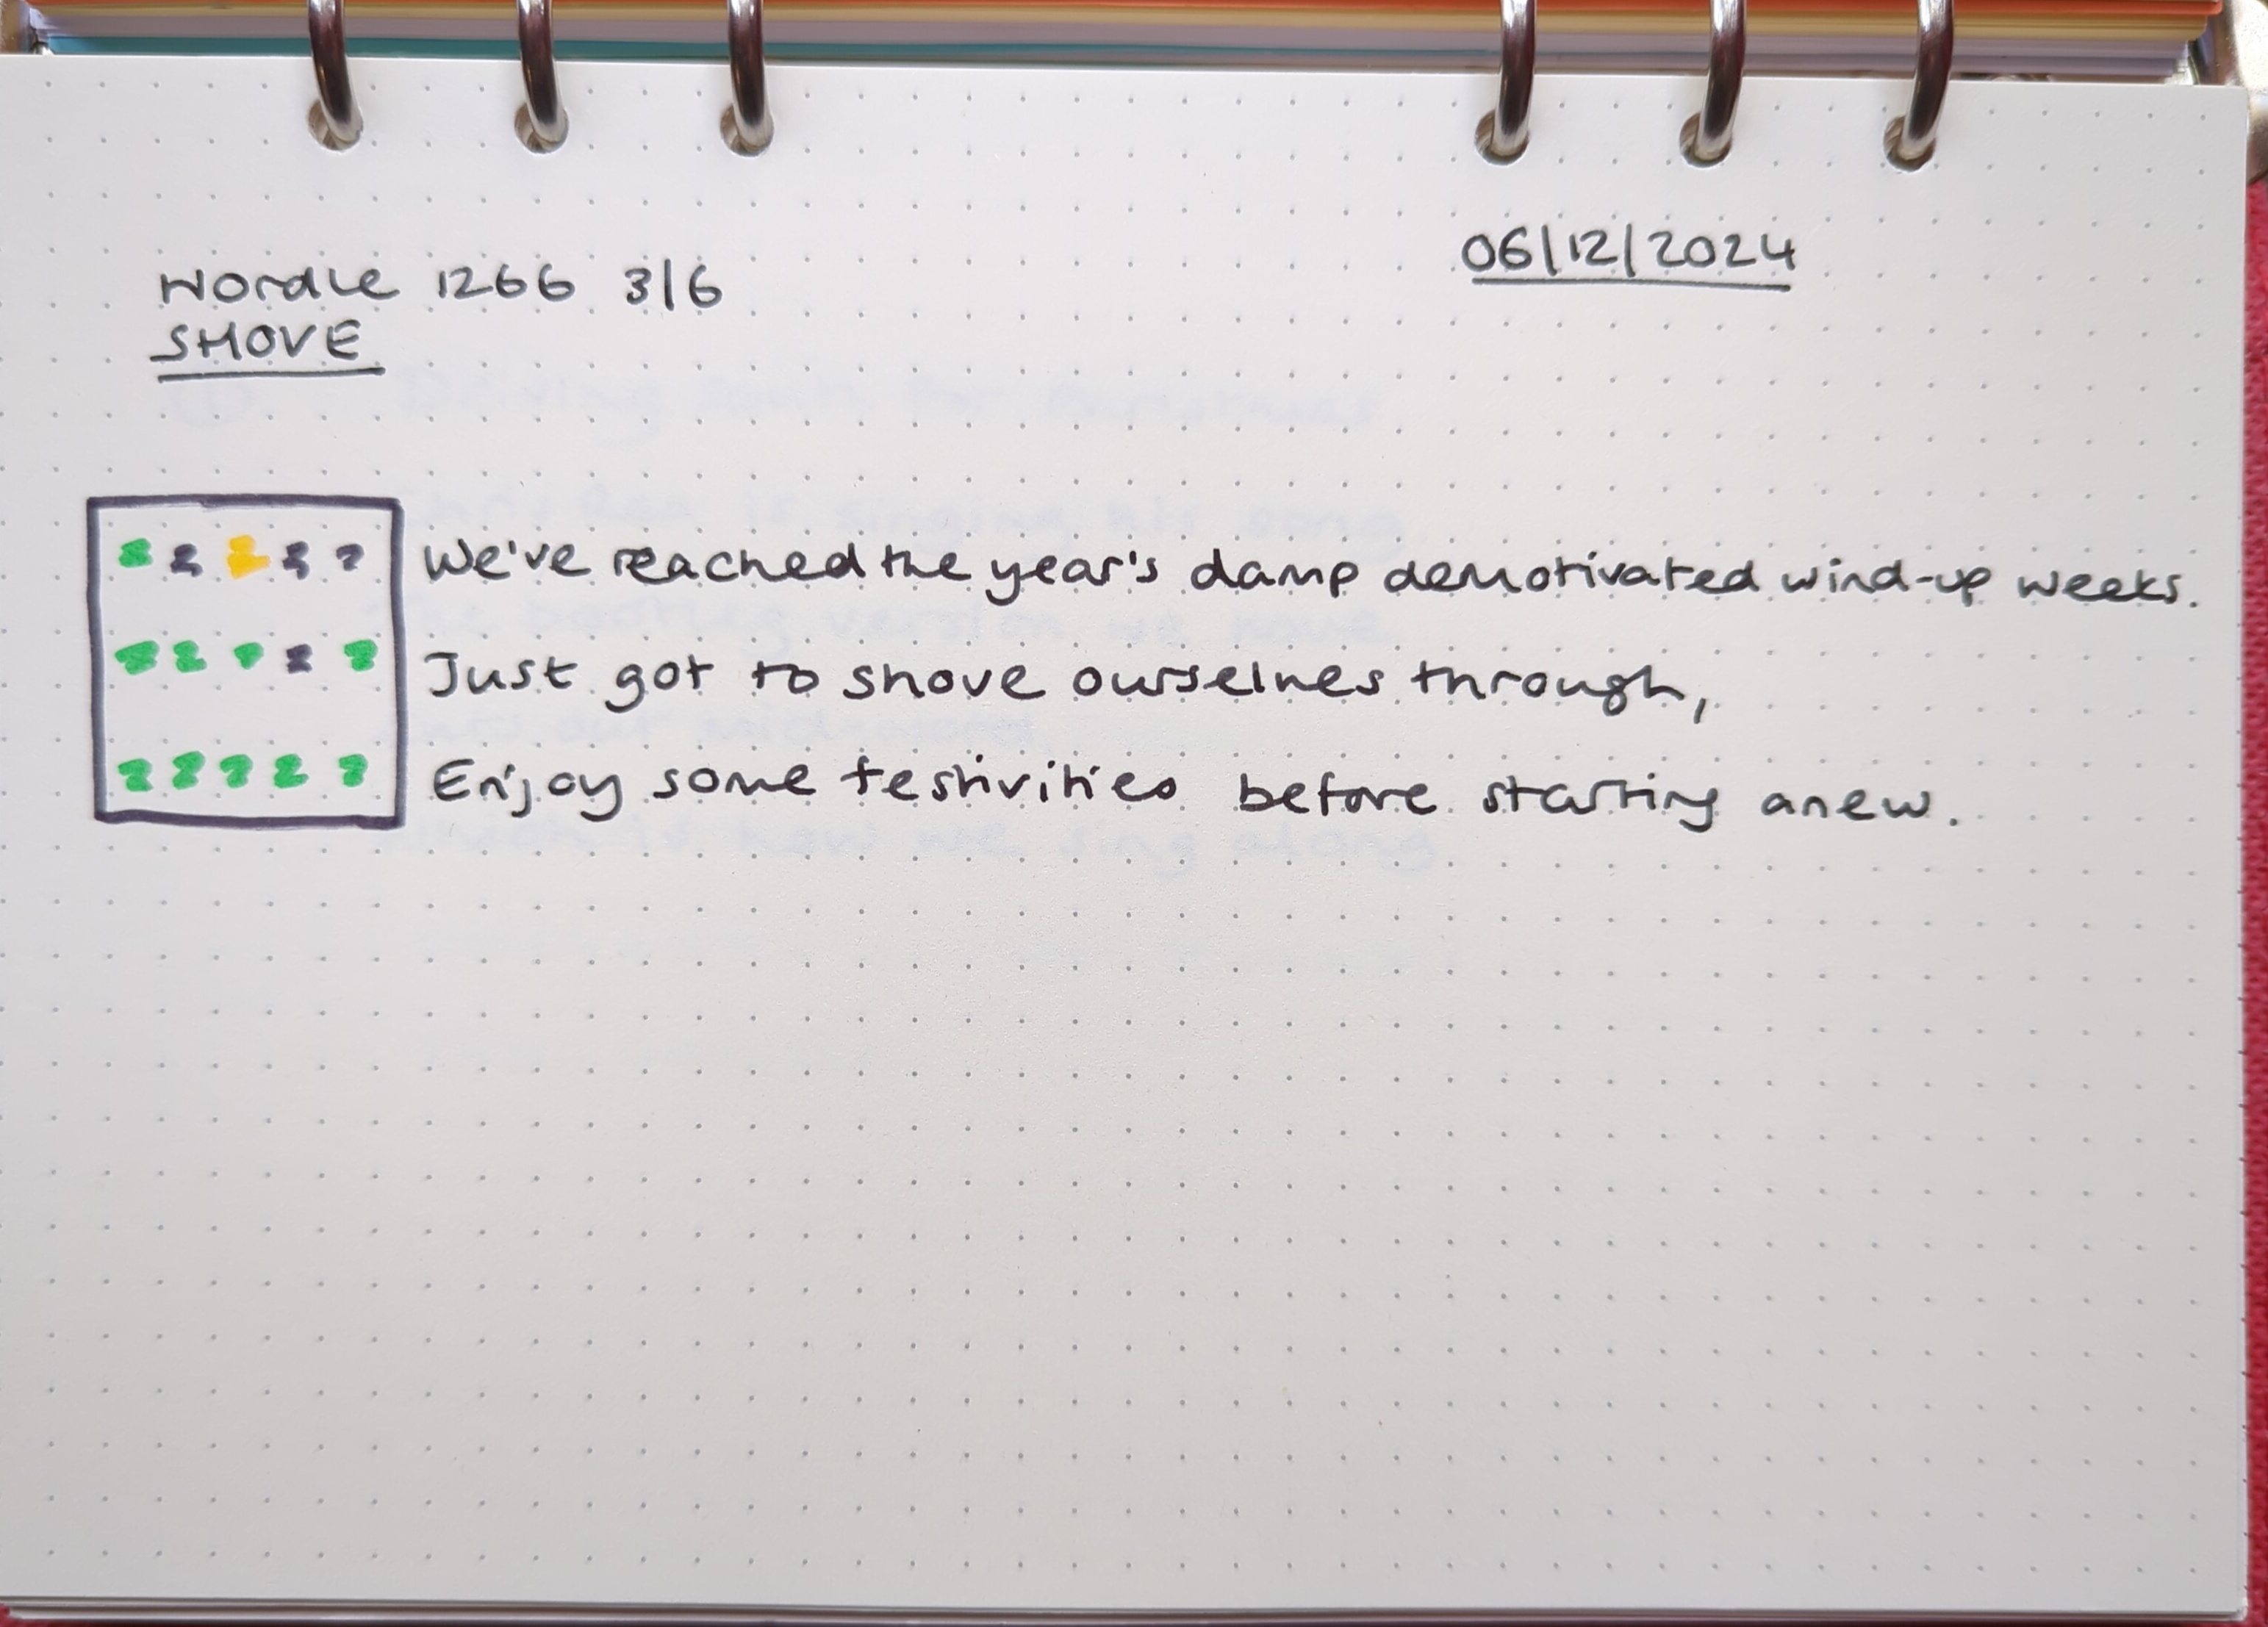 Wordle 1266 3/6
06/12/2024
SHOVE
We've reached the year's damp demotivated wind-up weeks.
Just got to shove ourselves through,
Enjoy some festivities before starting anew.